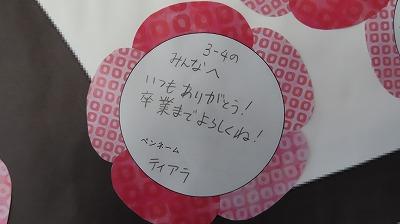 3-4の
みんなへ
いつもありがとう!
卒業までよろしくね!
ペンネーム
ティアラ